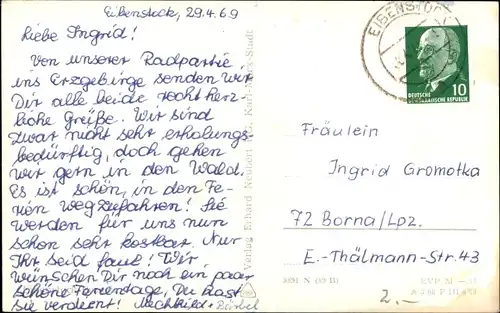 Eibenstock, 29.4.69
Liebe Ingrid!
Von unserer Radpartie
ins Erzgebirge senden wir
Dir alle beide recht herz-
liche Grüße. Wir sind
zwar nicht sehr erholungs-
bedürftig, doch gehen
wir gern in den Wald.
Es ist schön, in den Fe-
rien wegzufahren! Sie
werden für uns nun
schon sehr kostbar. Nur
Ihr seid faul! Wir
wünschen Dir noch ein paar
schöne Ferientage, Du hast
sie verdient! Mechthild
Verlag Erhard Neubert KG, Karl-Marx-Stadt
EIBENSTOCK
DEUTSCHE
DEMOKRATISCHE REPUBLIK
10
Fräulein
Ingrid Gromotka
72 Borna/Lpz.
E.-Thälmann-Str. 43
2.-